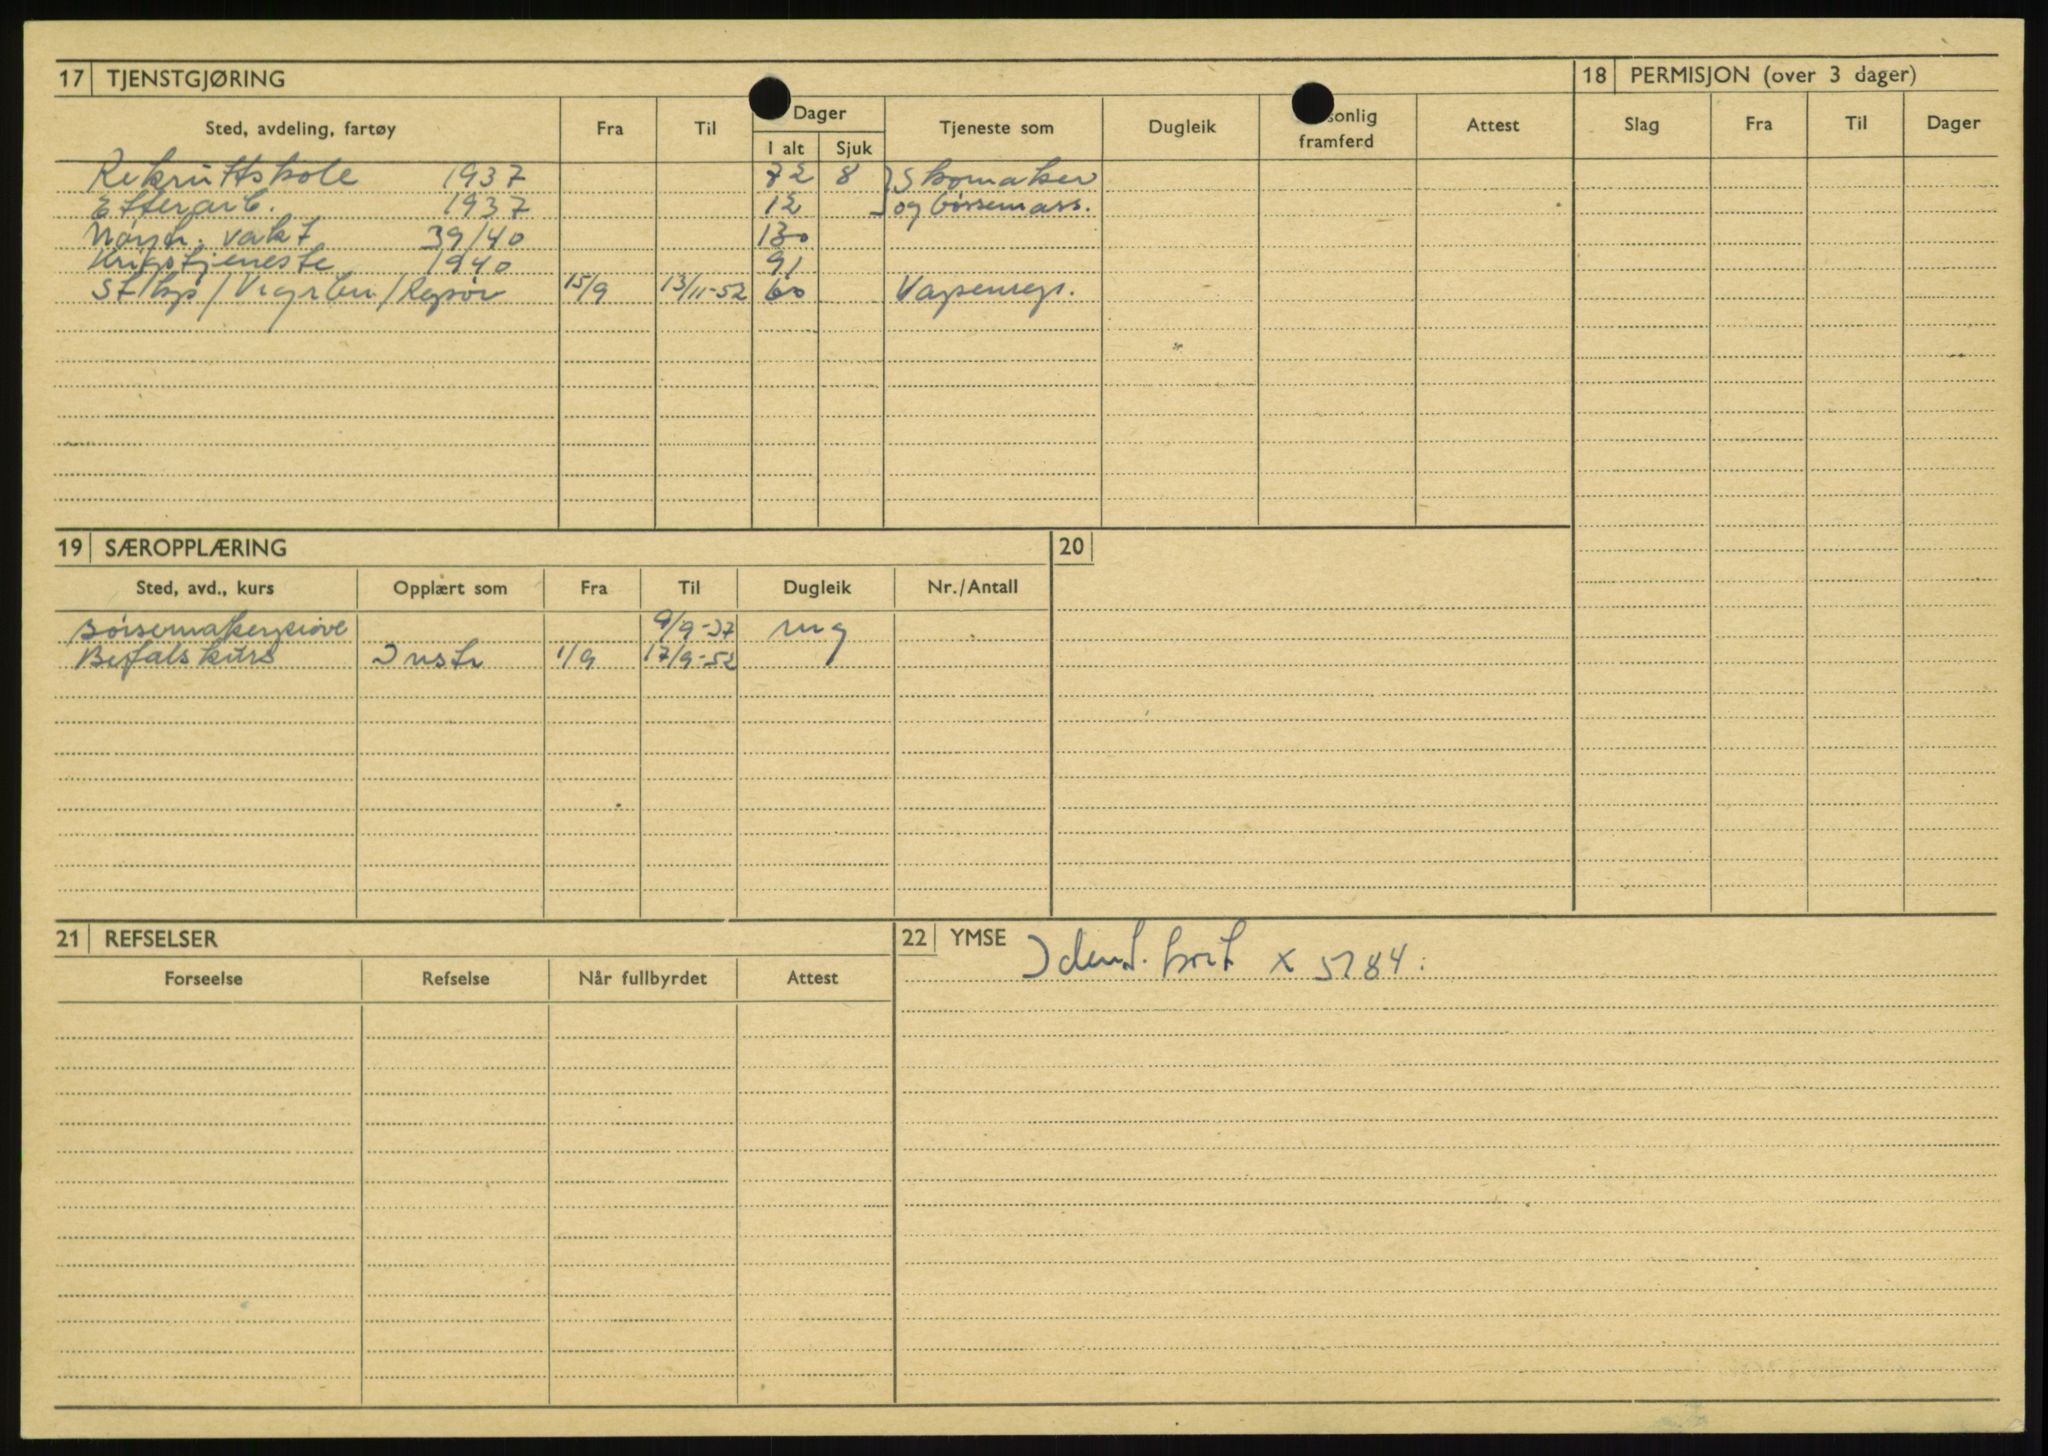 17 TJENSTGJØRING
18 PERMISJON (over 3 dager)
Sted, avdeling, fartøy Fra Til Dager Tjeneste som Dugleik sonlig framferd Attest
I alt Sjuk
Slag Fra Til Dager
Rekruttskole 1937 72 8 Skomaker
Etterarb. 1937 12 og børsemass.
Nøytr. vakt 39/40 130
Krigstjeneste 1940 91
St/kp/ 15/9 13/11-52 60
19 SÆROPPLÆRING
20
Sted, avd., kurs Opplært som Fra Til Dugleik Nr./Antall
Børsemakerprøve 9/9-37 mg
Befalskurs Instr 1/9 17/9-52
21 REFSELSER
22 YMSE Ident. kort x 5784.
Forseelse Refselse Når fullbyrdet Attest